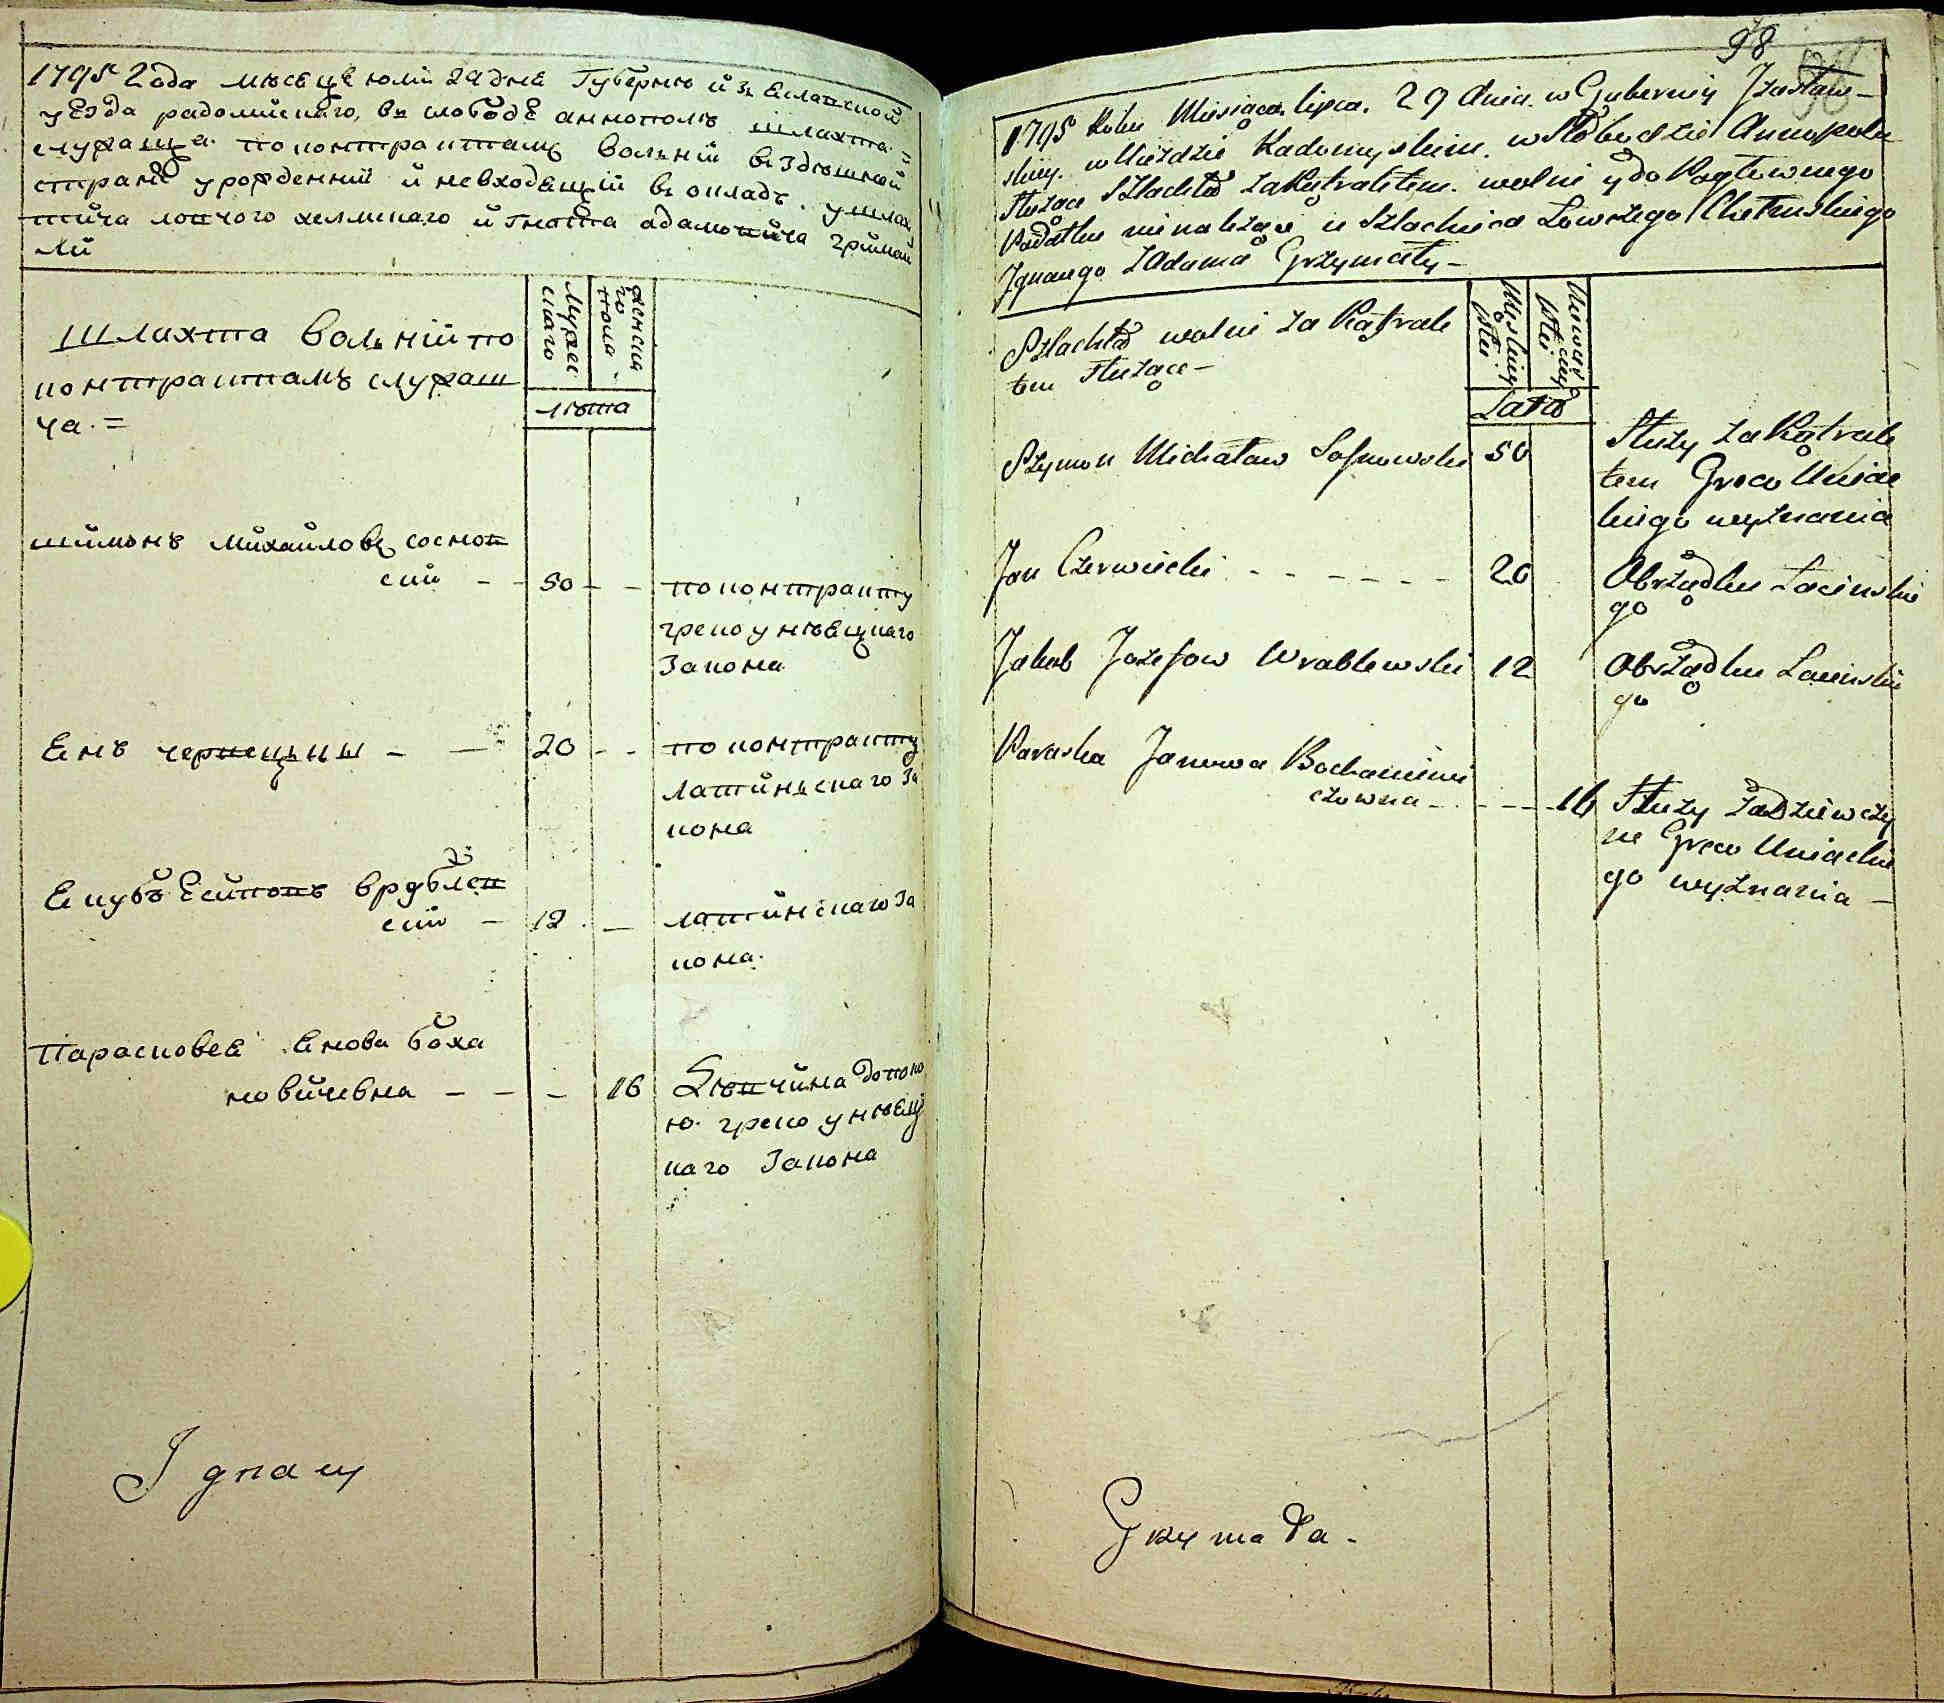 1795 Года мѣсеца юлii 29 дня Губернѣ Изяславской
уезда радомиского, въ слободе аннополѣ шлахта
служаща по контрактамъ вольнiй въ здешней
стране урожденнiй и невходящiй въ окладъ. у шлях
тича ловчого хелмскаго игнатiя адамовича гржимай
ли
Шлахта вольнiй по
контрактамъ служащ
ча. =
мужес
скаго
женска
го
пола
лѣта
шимонъ михайловъ соснов
скiй - - 50 - - по контракту
греко унѣяцкаго
закона
Янъ червецкiй - - 20 - - по контракту
латинскаго за
кона
Якубъ Есиповъ врублев
скiй - 12 - латинскаго за
кона.
Парасковея Янова боха
новичевна - - - 16 Дѣвчина до поко
ю. греко унѣяц
каго закона
Ignacy
98
1795 Roku Miesiąca lipca. 29 dnia. w Gubernij Izasław-
skiey. w Ujezdzie Radomyskim. w Słobodzie Annopolu
służące Szlachta za Kątraktem. wolni y do Pogłownego
Podatku nie należące u Szlachcica Łowczego Chełmskiego
Ignacego z Adama Grzymały -
Szlachta wolni za Kątrak
tem służące -
Męskiey
płci
Niewieściey
płci
Lata
Szymon Michałow Sosnowski 50 Służy za Kątrak
tem Greco Uniac
kiego wyznania
Jan Czerwiecki - - - - - - 20 Obrządku Łacinskie
go
Jakub Jozefow Wrablewski 12 Obrządku Łacinskie
go
Paraska Janowa Bochanowi
czowna - - - - 16 Służy za Dziewczy
ne Greco Uniackie
go wyznania -
Grzymała -